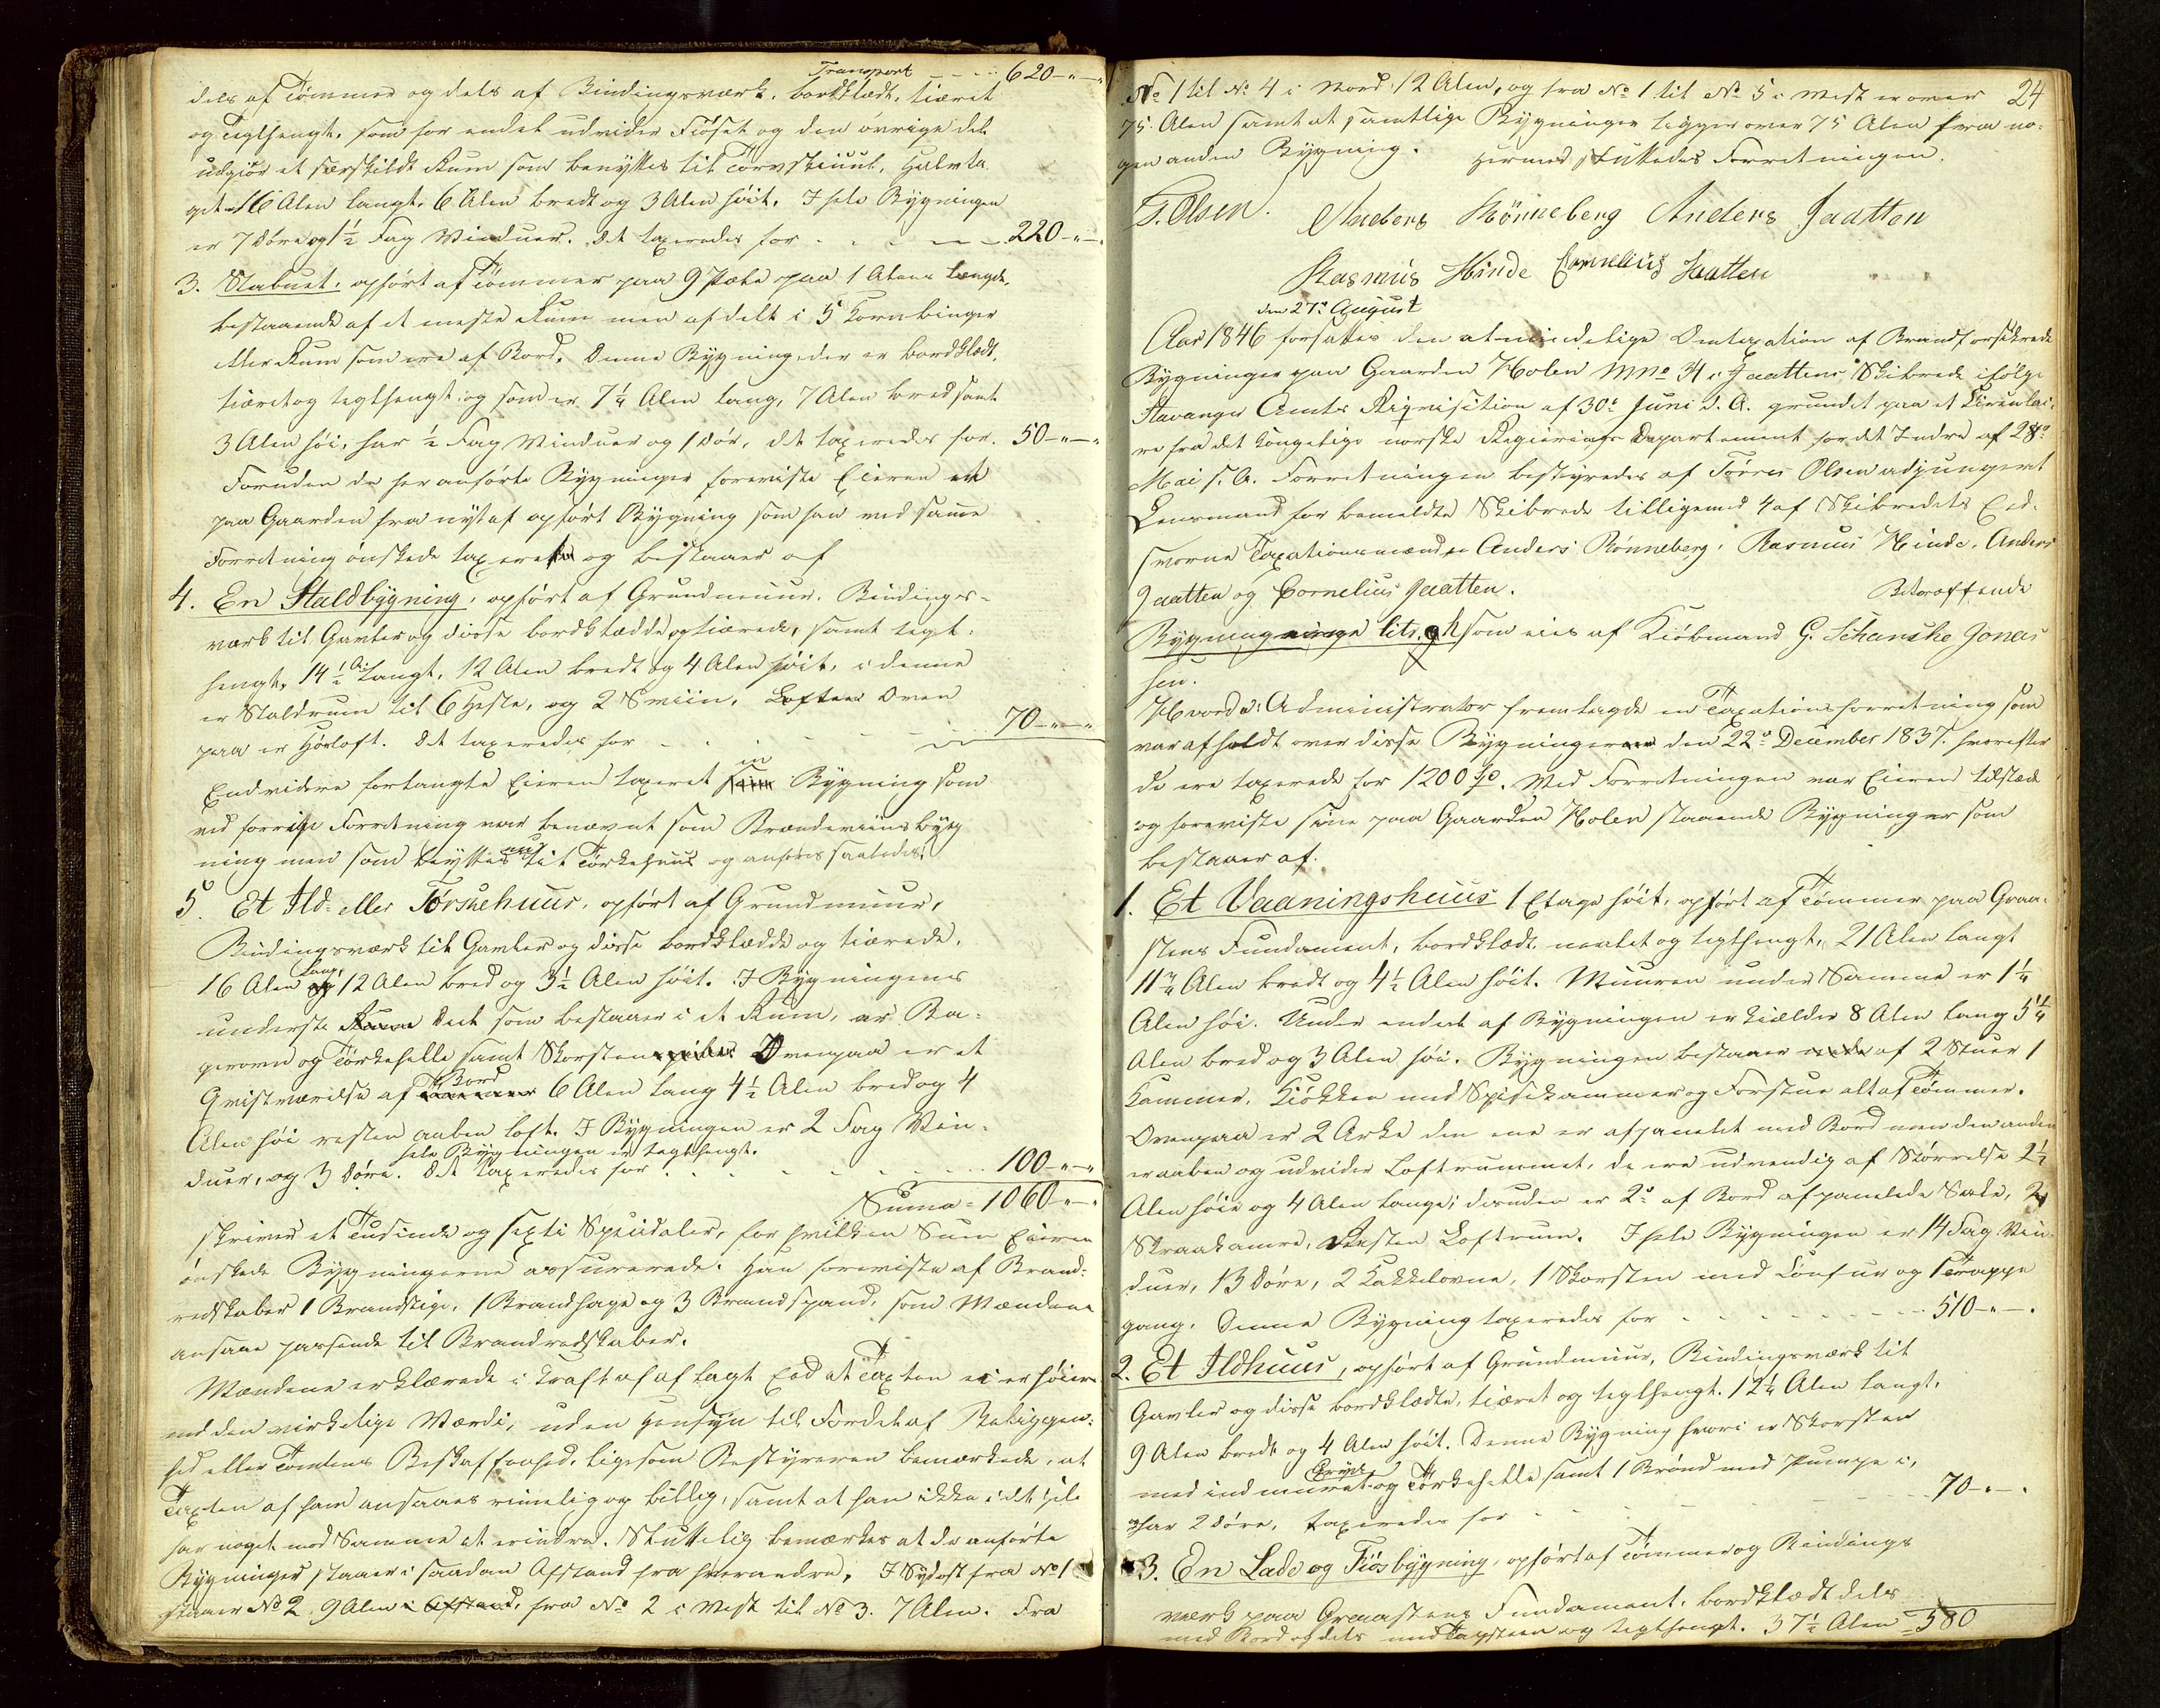 Transport - - - 620-"-"
dels af Tømmer og dels af Bindingsværk, bordklædt, tiæret
og tegthengt, som for endeel udvider Fiøset og den øvrige del
udgiør et særskildt Rum som benyttes til Tørvskiuul, Halvta-
get 16 Alen langt, 6 Alen bredt og 3 Alen høit. I hele Bygningen
er 7 Døre og 1½ Fag Vinduer. Det taxeredes for - - - 220-"-"
3. Stabuet, opført af Tømmer paa 9 Pæle paa 1 Alens Længde,
bestaaende af et meste Rum men afdelt i 5 Kornbinger
eller Rum som ere af Bord. Denne Bygning der er bordklædt,
tiæret og tegthengt og som er 7¼ Alen lang, 7 Alen bred samt
3 Alen høi, har ½ Fag Vinduer og 1 Dør, det taxeredes for. 50-"-"
Foruden de her anførte Bygninger foreviste Eieren et
paa Gaarden fra nyt af opført Bygning som han ved samme
Forretning ønskede taxeret og bestaaer af
4. En Staldbygning, opført af Grundmuur, Bindings-
værk til Gavler og disse bordklædde og tiærede, samt tegt-
hengt, 14½ Al: langt, 12 Alen bredt og 4 Alen høit, i denne
er Staldrum til 6 Heste, og 2 Sviin, Oven
paa er Høeloft. Det taxeredes for - - - 70-"-"
Endvidere forlangte Eieren taxeret en Bygning som
ved forrige Forretning var benævnt som Brændeviinsbyg
ning men som benyttes nu til Tørkehuus og anføres saaledes:
5. Et Ild- eller Tørkehuus, opført af Grundmuur,
Bindingsværk til Gavler og disse bordklædde og tiærede,
16 Alen lang, 12 Alen bred og 3½ Alen høit. I Bygningens
underste Deel som bestaaer i et Rum, er Ba-
gerovn og Tørkehelle samt Skorsten Ovenpaa er et
Qvistværelse af Bord 6 Alen lang 4½ Alen bred og 4
Alen høi resten aaben Loft. I Bygningen er 2 Fag Vin-
hele Bygningen er tegthengt.
duer, og 3 Døre. Det taxeredes for - - - 100-"-"
Suma = 1060-"-"
skriver et Tusinde og sexti Speciedaler, for hvilken Sum Eieren
ønskede Bygningerne assurerede. Han foreviste af Brand-
redskaber 1 Brandstige, 1 Brandhage og 3 Brandspand, som Mændene
ansaae passende til Brandredskaber.
Mændene erklærede i Kraft af aflagt Eed at Taxten ei er høiere
end den virkelige Værdi, uden Hensyn til Fordel af Beliggen-
hed eller Tomtens Beskaffenhed, ligesom Bestyreren bemærkede, at
Taxten af ham ansaaes rimelig og billig, samt at han ikke i det hele
har noget mod Samme at erindre. Sluttelig bemærkes at de anførte
Bygninger staaer i saadan Afstand fra hverandre, I Sydost fra No 1
staaer No 2, 9 Alen i Afstand, fra No 2 i Vest til No 3. 7 Alen. Fra
24
No 1 til No 4 i Nord 12 Alen, og fra No 1 til No 5 i Vest er over
75 Alen samt at samtlige Bygninger ligger over 75 Alen fra no-
gen anden Bygning. Hermed sluttedes Forretningen.
T. Olsen. Anders Rönneberg Anders Jaatten
Rasmus Hinde Cornelius Jaatten
den 27de August
Aar 1846 forsattes den almindelige Omtaxation af Brandforsikrede
Bygninger paa Gaarden Holen Mno 34 i Jaattens Skibrede ifølge
Stavanger Amts Reqvisition af 30te Juni d. A. grundet paa et Circulai-
re fra det kongelige norske Regierings Departement for det Indre af 28de
Mai s. A. Forretningen bestyredes af Tørres Olsen adjungeret
Lensmand for bemeldte Skibrede tilligemed 4 af Skibredets Eed-
svorne Taxationsmænd Anders Rönneberg, Rasmus Hinde, Anders
Jaatten og Cornelius Jaatten.
Betræffende
Bygningerne litr. h som eies af Kiøbmand G. Schanche Jonas
sen.
Hvorda: Administrator fremlagde en Taxationsforretning som
var afholdt over disse Bygninger den 22de December 1837. hvorefter
de ere taxerede for 1200 Spd. Ved Forretningen var Eieren tilstede
og foreviste sine paa Gaarden Holen staaende Bygninger som
bestaaer af.
1. Et Vaaningshuus 1 Etage høit, opført af Tømmer paa Graa-
stens Fundament, bordklædt, malet og tegthengt, 21 Alen langt
11¾ Alen bredt og 4½ Alen høit. Muuren under Samme er 1¼
Alen høi. Under endeel af Bygningen er Kielder 8 Alen lang 5¼
Alen bred og 3 Alen høi. Bygningen bestaaer af 2 Stuer 1
Kammer, Kiøkken med Spisekammer og Forstue alt af Tømmer.
Ovenpaa er 2 Arke den ene er afpanelet med Bord men den anden
er aaben og udvider Loftrummet, de ere udvendig af Størrelse 2½
Alen høie og 4 Alen lange; desuden er 2de af Bord afpanelede Sale, 2
Skraakamre, Resten Loftrum. I hele Bygningen er 14 Fag Vin-
duer, 13 Døre, 2 Kakkelovne, 1 Skorsten med Comfur og 1 Trappe
gang. Denne Bygning taxeredes for - - - 510-"-"
2. Et Ildhuus, opført af Grundmuur, Bindingsværk til
Gavler og disse bordklædte, tiæret og tegthengt. 12¼ Alen langt,
9 Alen bredt og 4 Alen høit. Denne Bygning hvori er Skorsten
med indmuret Gryde og Tørkehelle samt 1 Brønd med Pumpe i,
har 2 Døre, taxeredes for - - - 70-"-"
3. En Lade og Fiøsbygning, opført af Tømmer og Bindings
værk paa Graastens Fundament, bordklædt dels
med Bord og dels med Tagsteen og tegthengt. 37½ Alen - 580